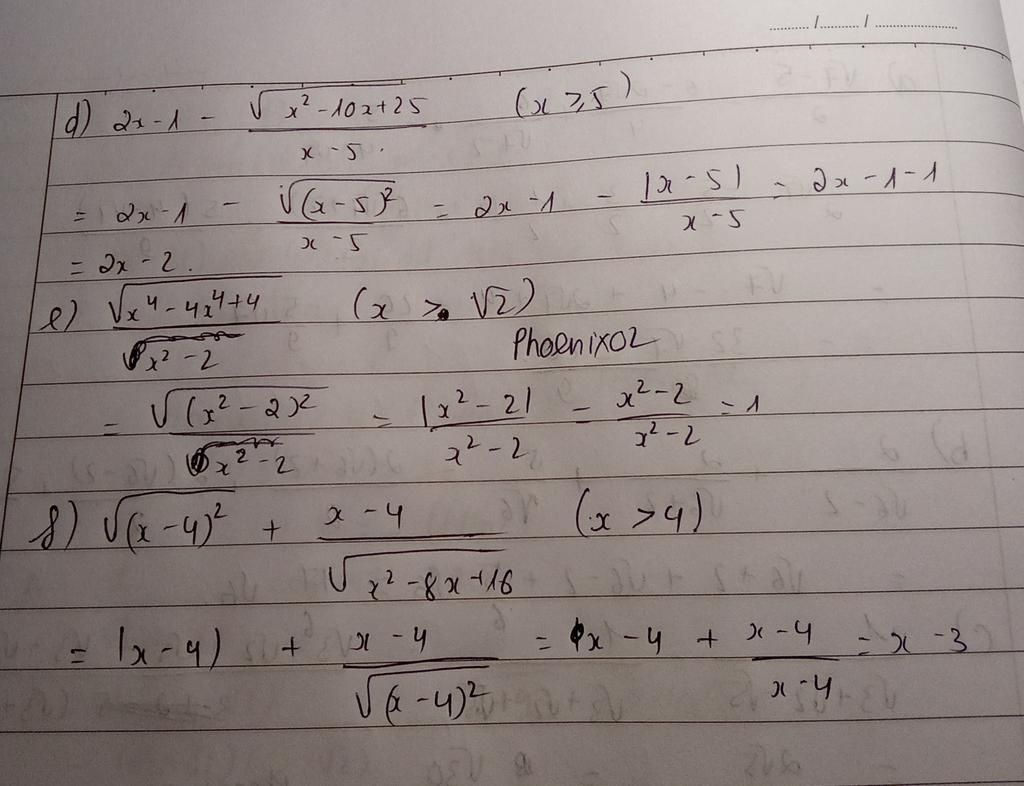 ....../....../............
d) 2x-1 - √(x²-10x+25)/(x-5) (x ≥ 5)
= 2x-1 - √((x-5)²)/(x-5) = 2x-1 - |x-5|/(x-5) = 2x-1-1
= 2x-2.
e) √(x⁴-4x⁴+4)/(x²-2) (x > √2)
Phoenix02
= √((x²-2)²)/(x²-2) = |x²-2|/(x²-2) = (x²-2)/(x²-2) = 1
f) √((x-4)²) + (x-4)/√(x²-8x+16) (x > 4)
= |x-4| + (x-4)/√((x-4)²) = x-4 + (x-4)/(x-4) = x-3